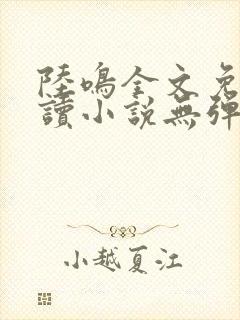 陸鳴全文免
讀小說無彈
小越夏江